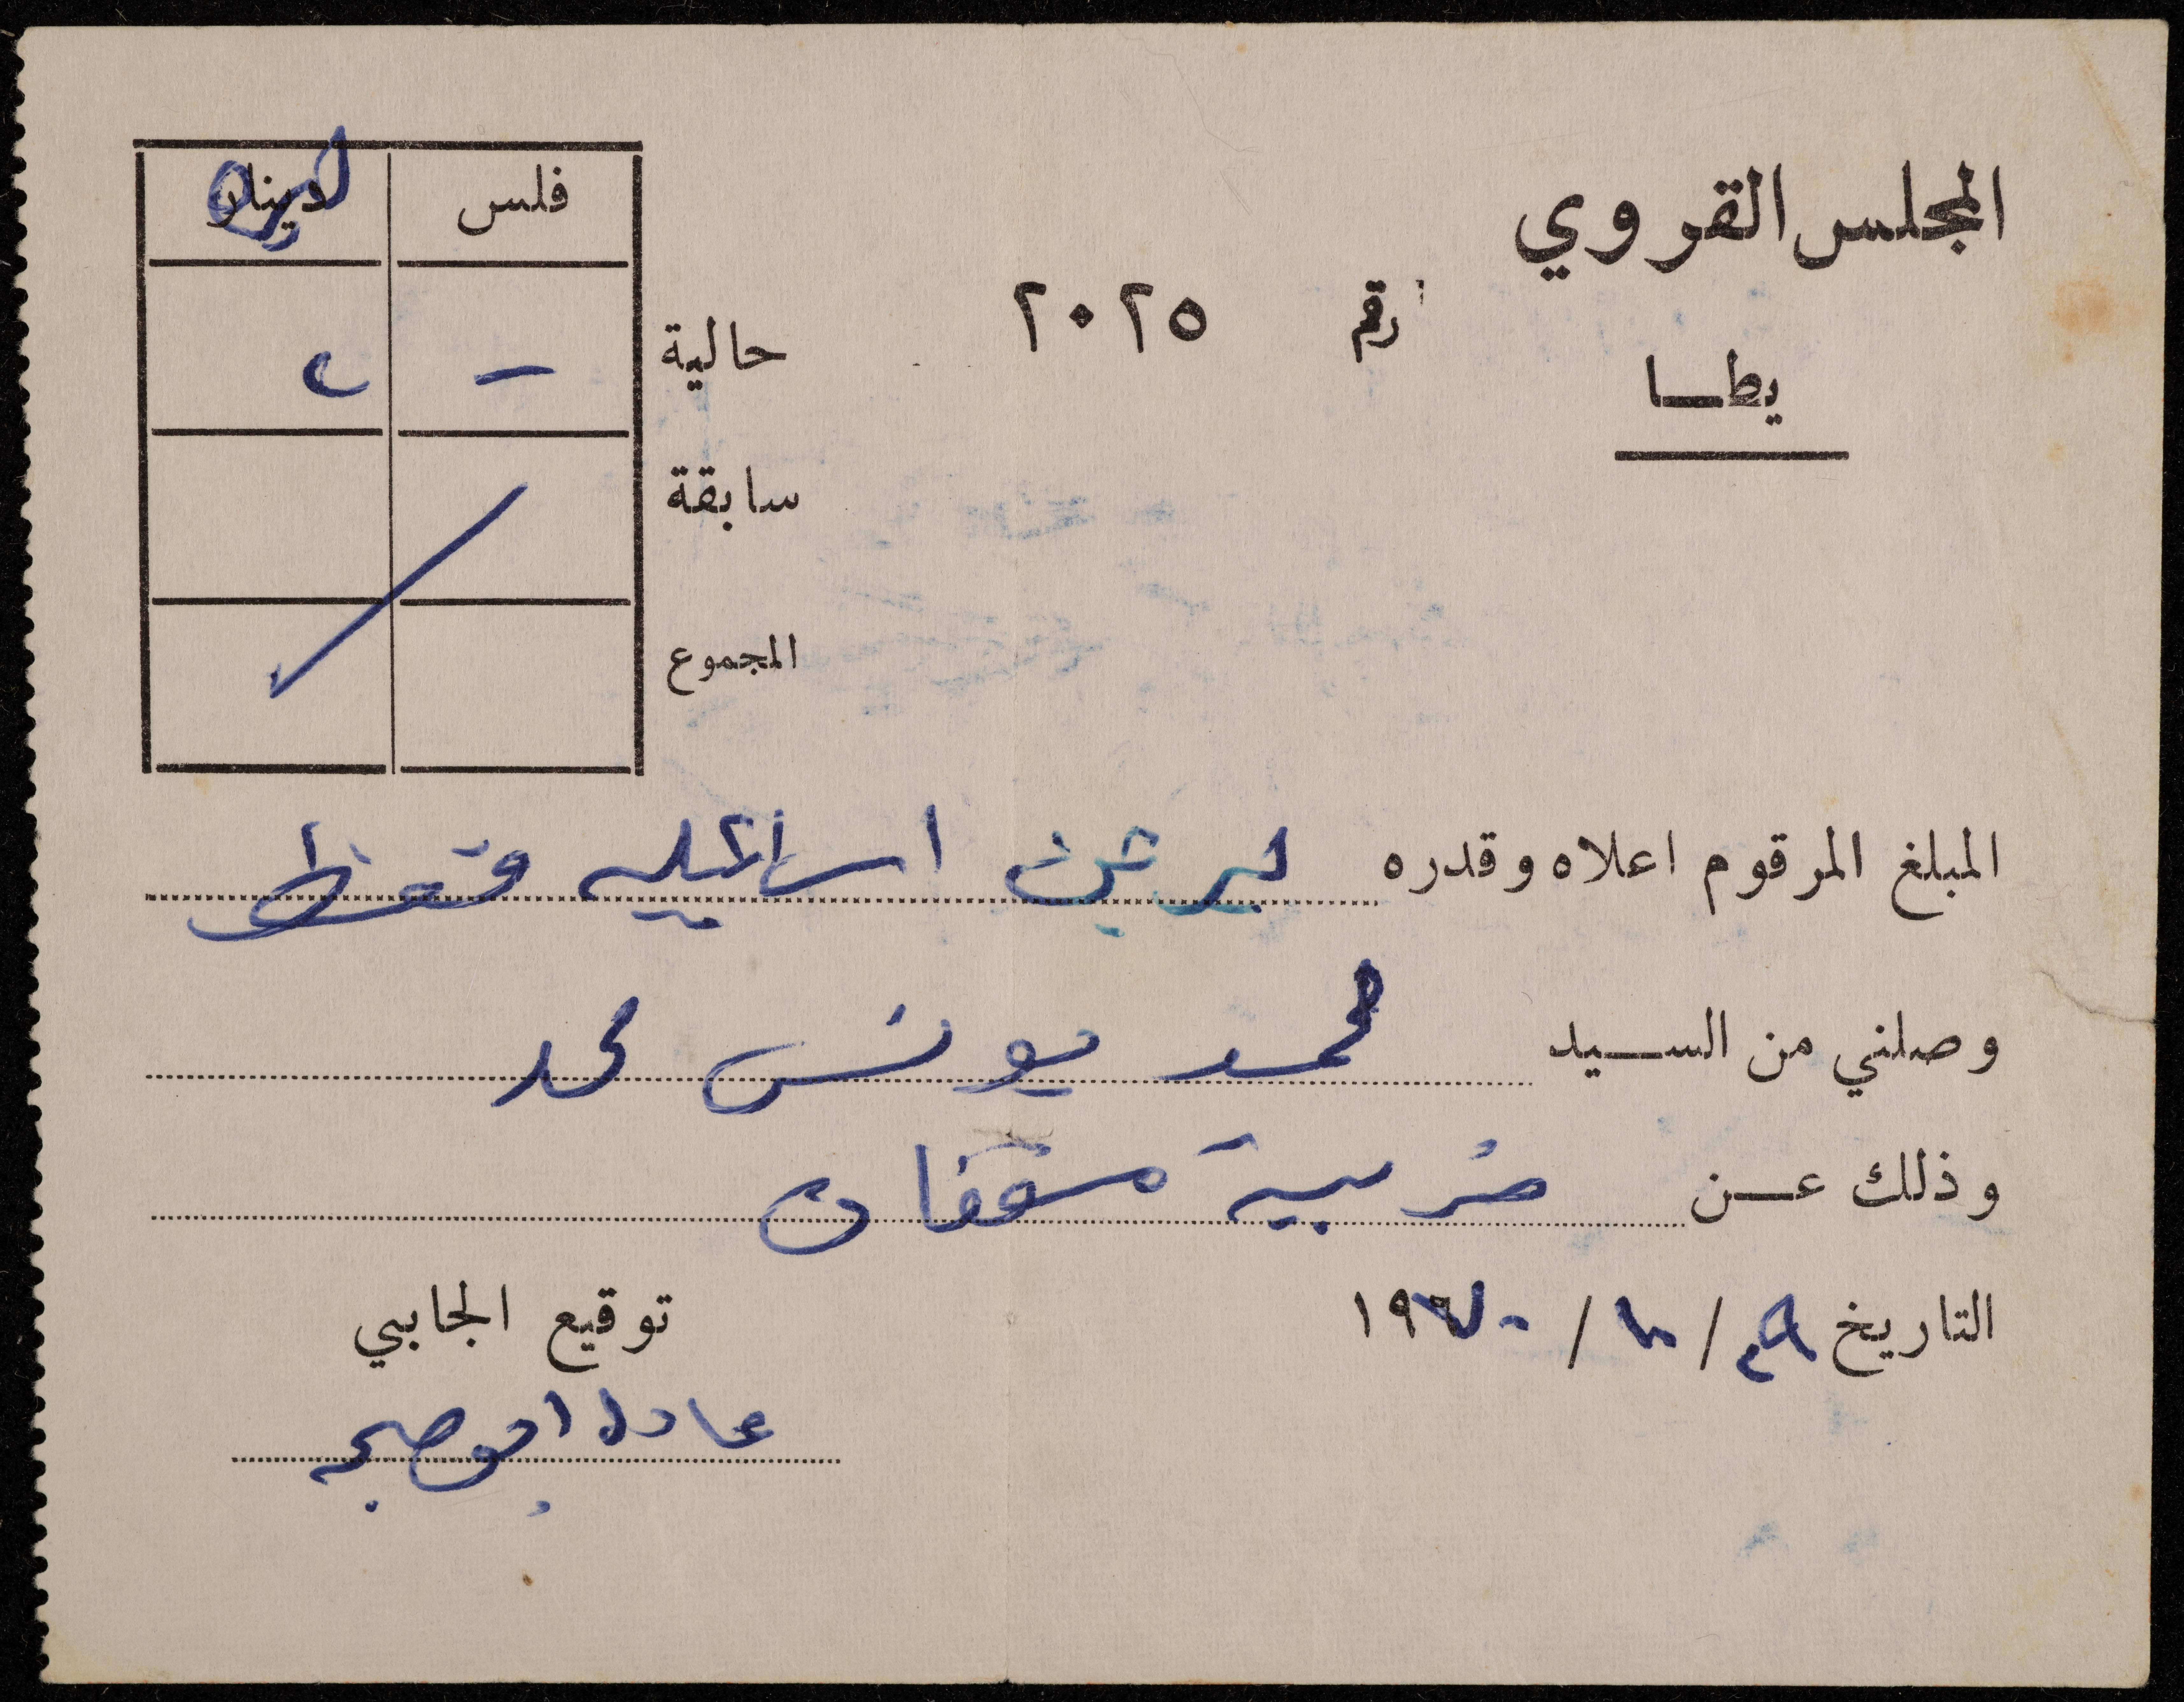 المجلس القروي
يطا
رقم ٢٠٢٥
فلس دينار ليرة
حالية - ٢
سابقة
المجموع
المبلغ المرقوم اعلاه وقدره ليرتين اسرائيليه فقط
وصلني من السيد محمد يونس محمد
وذلك عن ضريبة مسقفات
التاريخ ٢٩ / ١٠ / ١٩٧٠
توقيع الجابي
عادل ابو